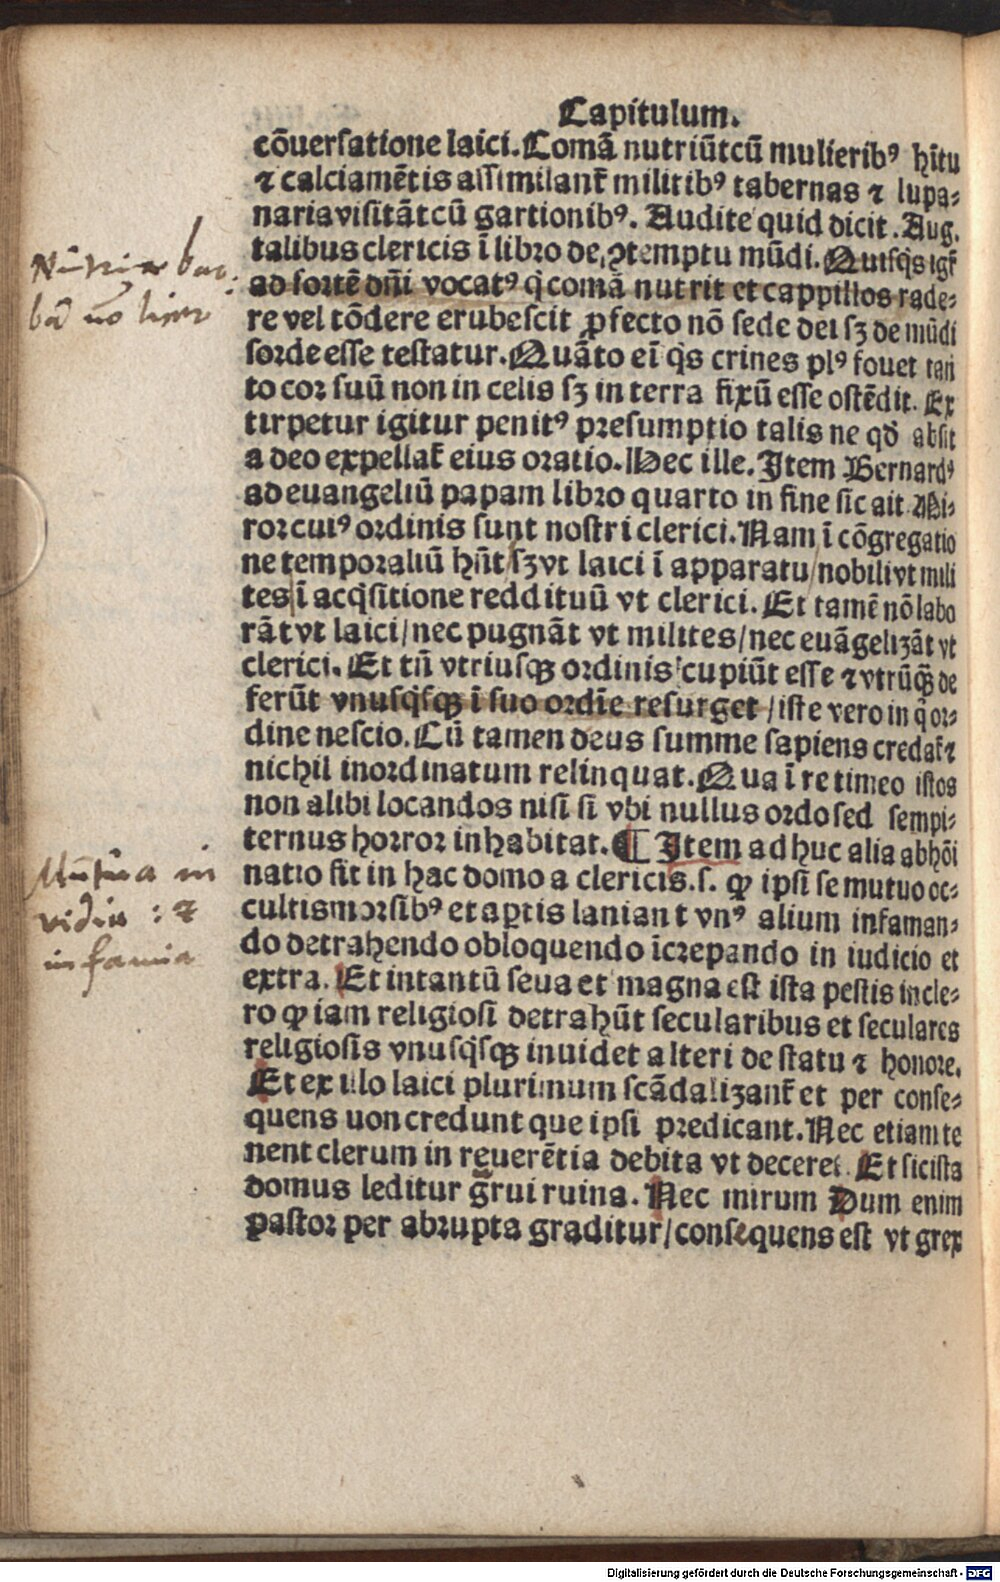 Capitulum.
cōuersatione laici. Comā nutriūt cū mulieribꝰ hn̄tu
⁊ calciamētis assimilanť militibꝰ tabernas ⁊ lupa⸗
naria visitāt cū gartionibꝰ. Audite quid dicit. Aug.
talibus clericis ī libro de ꝯtemptu mūdi. Quisq̇s igť
ad sortē dn̄i vocatꝰ q̇ comā nutrit et cappillos rade⸗
re vel tōdere erubescit ꝓfecto nō sede dei sꝫ de mūdi
sorde esse testatur. Quāto eī q̇s crines plꝰ fouet tan
to cor suū non in celis sꝫ in terra fixū esse ostēdit. Ex
tirpetur igitur penitꝰ presumptio talis ne qd̄ absit
a deo expellať eius oratio. Hec ille. Item Bernardꝰ
ad euangeliū papam libro quarto in fine sic ait. Mi⸗
ror cuiꝰ ordinis sunt nostri clerici. Nam ī cōgregatio
ne temporaliū hn̄t/ sꝫ vt laici ī apparatu/ nobili vt mili
tes/ ī acq̇sitione reddituū vt clerici. Et tamē nō labo
rāt vt laici/ nec pugnāt vt milites/ nec euāgelizāt vt
clerici. Et tn̄ vtriusqꝫ ordinis cupiūt esse ⁊ vtrūqꝫ de
ferūt vnusq̇sqꝫ ī suo ordīe resurget/ iste vero in q̇ or⸗
dine nescio. Cū tamen deus summe sapiens credať ⁊
nichil inordinatum relinquat. Qua ī re timeo istos
non alibi locandos nisi si vbi nullus ordo sed sempi⸗
ternus horror inhabitat. ¶ Item adhuc alia abhōi
natio fit in hac domo a clericis. s. ꝙ ipsi se mutuo oc⸗
cultis morsibꝰ et aꝑtis laniant vnꝰ alium infaman⸗
do detrahendo obloquendo īcrepando in iudicio et
extra. Et intantū seua et magna est ista pestis in cle⸗
ro ꝙ iam religiosi detrahūt secularibus et seculares
religiosis vnusq̇sqꝫ inuidet alteri de statu ⁊ honore.
Et ex illo laici plurimum scādalizanť et per conse⸗
quens uon credunt que ipsi predicant. Nec etiam te
nent clerum in reuerētia debita vt deceret. Et sic ista
domus leditur g̃rui ruina. Nec mirum Dum enim
pastor per abrupta graditur/ consequens est vt grex
Nūtrire bar:
bā nō licet
Mutua in
vidia : ⁊
infamia
Digitalisierung gefördert durch die Deutsche Forschungsgemeinschaft - DFG